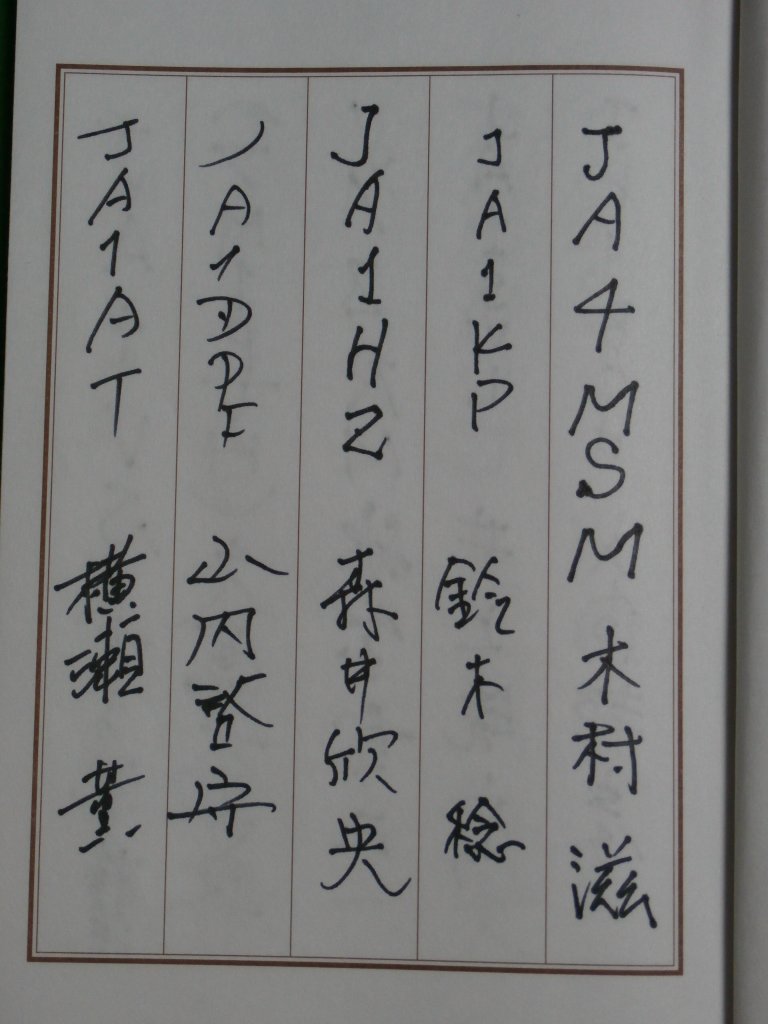 JA4MSM 木村 滋
JA1KP 鈴木 稔
JA1HZ 森井欣央
JA1DDF 山内
JA1AT 横瀬 薫